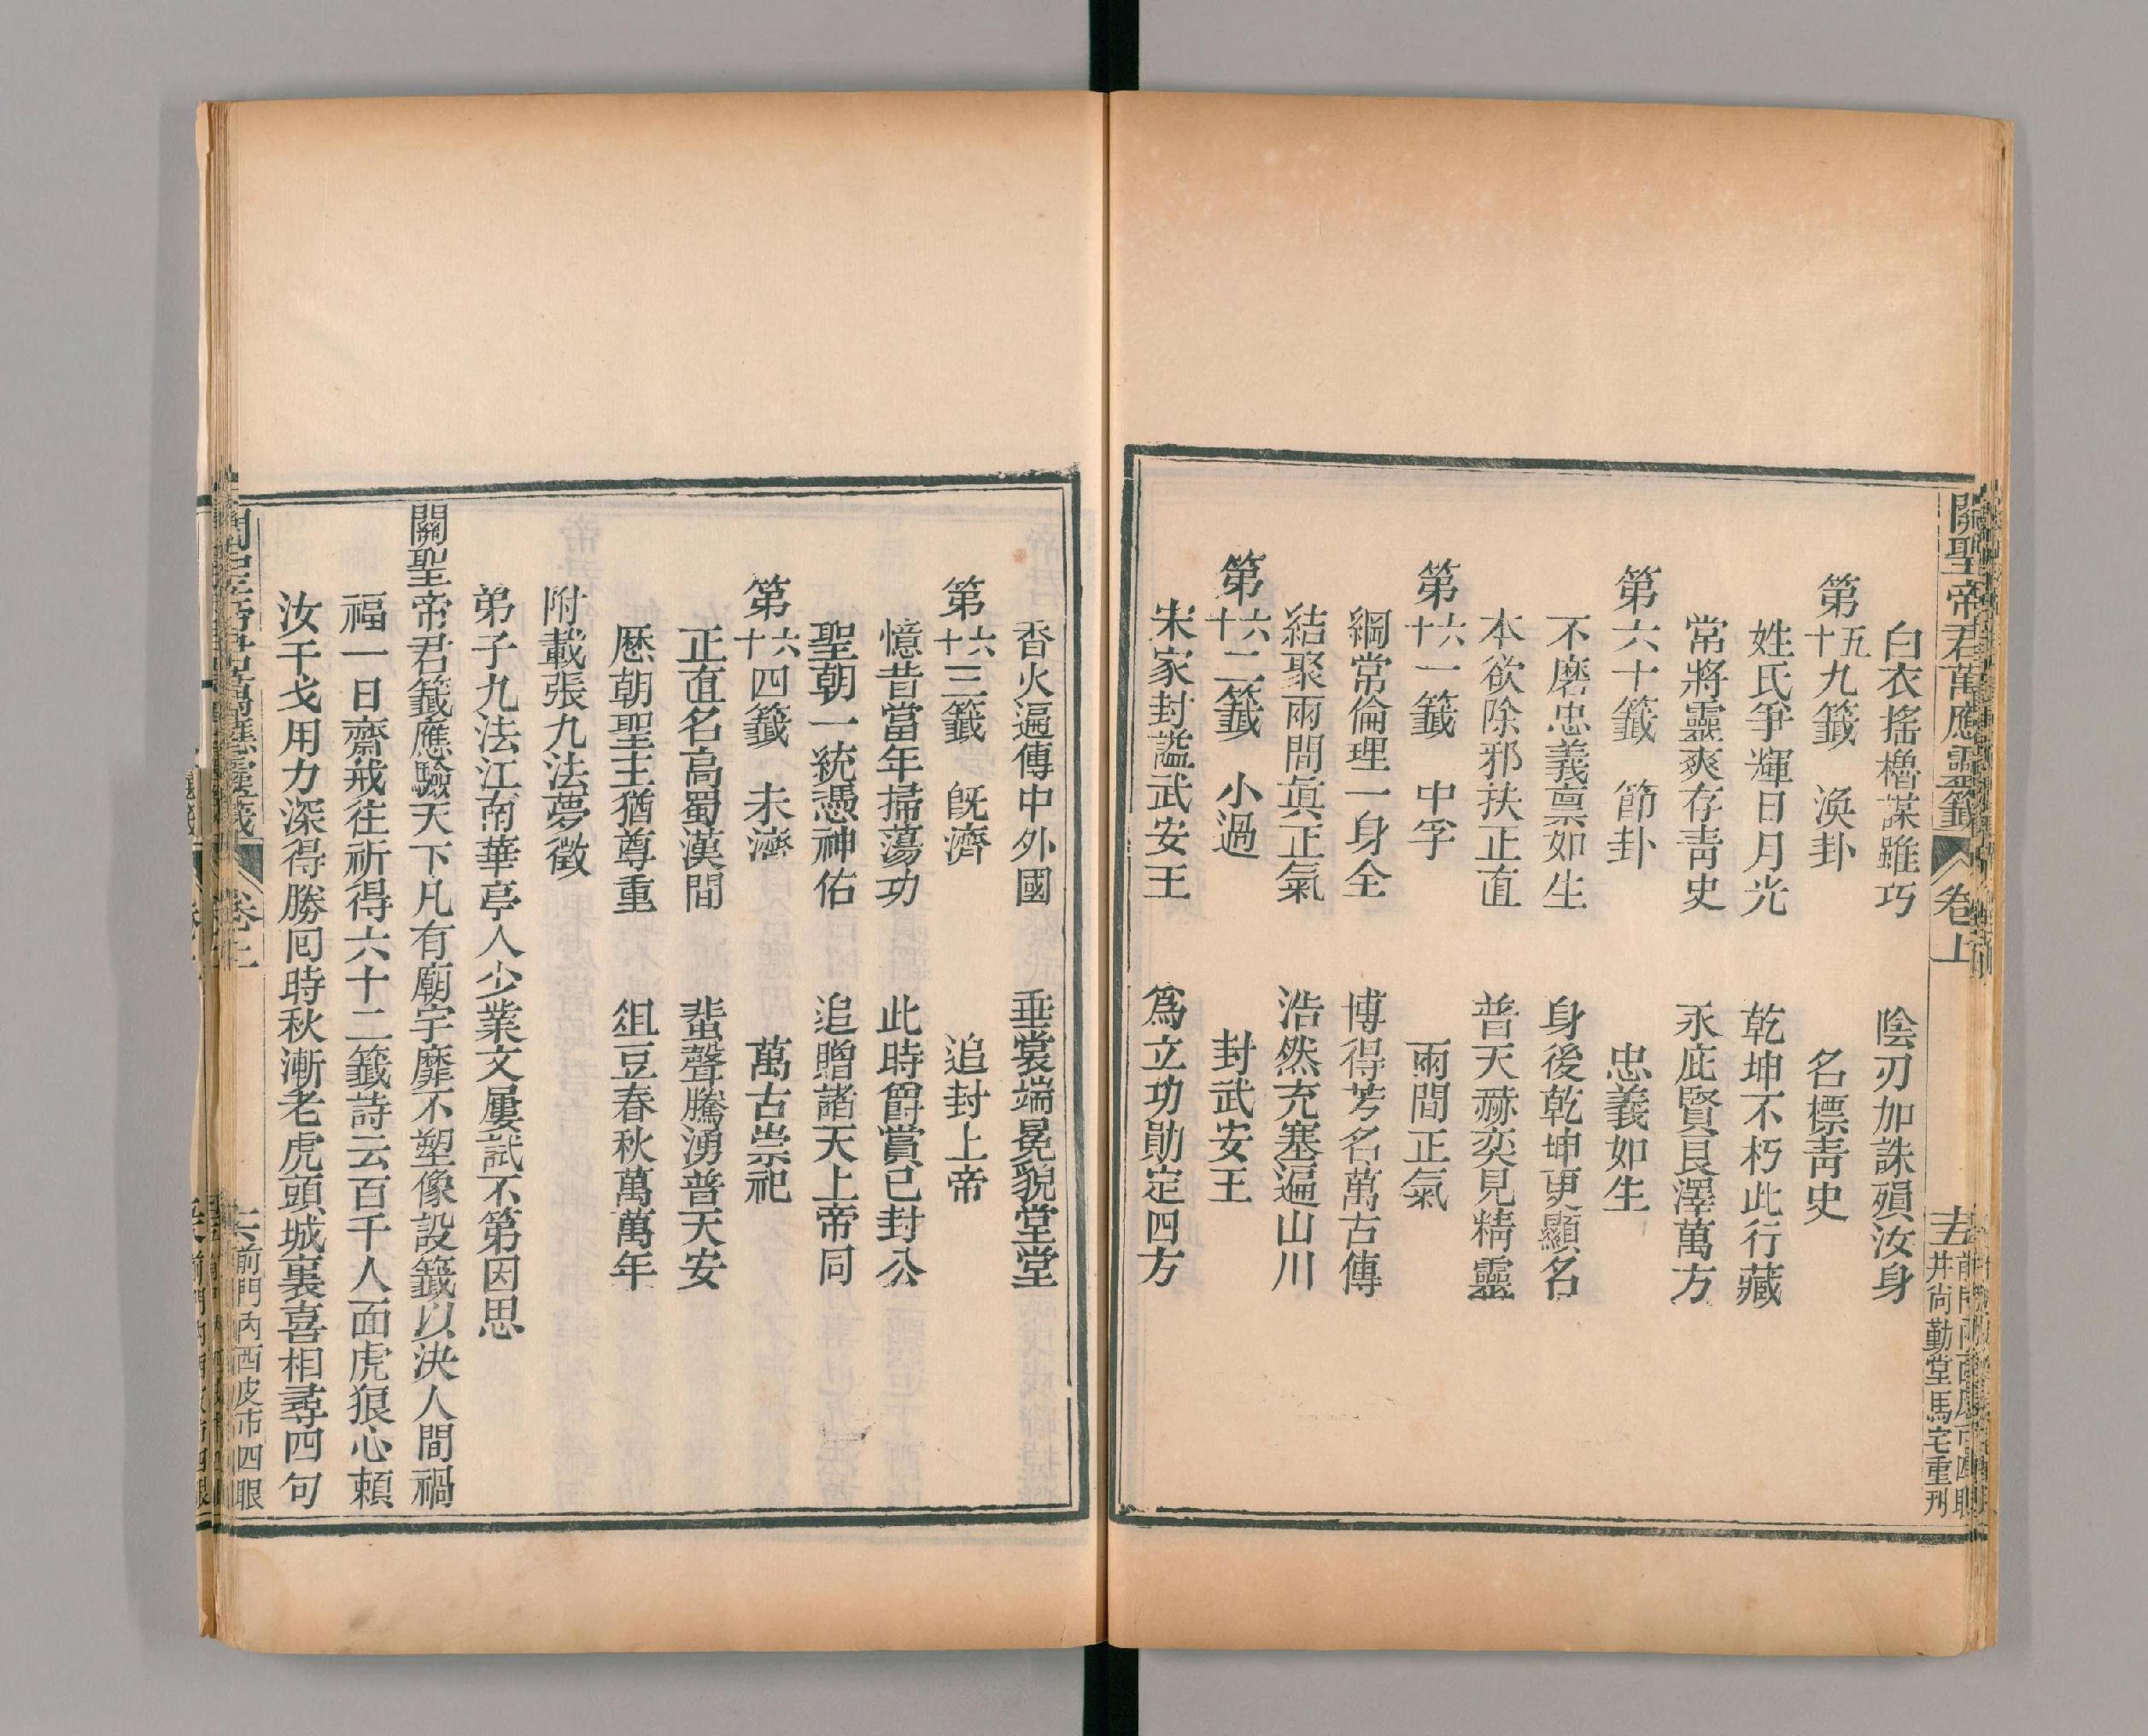 關聖帝君萬應靈籤 卷上 十五
井尚勤堂馬宅重刊
白衣搖櫓謀雖巧 陰刃加誅殞汝身
第五十九籤 渙卦 名標靑史
姓氏爭輝日月光 乾坤不朽此行藏
常將靈爽存靑史 永庇賢良澤萬方
第六十籤 節卦 忠義如生
不磨忠義稟如生 身後乾坤更顯名
本欲除邪扶正直 普天赫奕見精靈
第六十一籤 中孚 兩間正氣
綱常倫理一身全 博得芳名萬古傳
結聚兩間眞正氣 浩然充塞遍山川
第六十二籤 小過 封武安王
宋家封謚武安王 爲立功勛定四方
香火遍傳中外國 垂裳端冕貌堂堂
第六十三籤 旣濟 追封上帝
憶昔當年掃蕩功 此時爵賞已封公
聖朝一統憑神佑 追贈諸天上帝同
第六十四籤 未濟 萬古崇祀
正直名高蜀漢間 蜚聲騰湧普天安
歷朝聖主猶尊重 俎豆春秋萬萬年
附載張九法夢徵
弟子九法江南華亭人少業文屢試不第因思
關聖帝君籤應驗天下凡有廟宇靡不塑像設籤以決人間禍
福一日齋戒往祈得六十二籤詩云百千人面虎狼心賴
汝干戈用力深得勝囘時秋漸老虎頭城裏喜相尋四句
關聖帝君萬應靈籤 卷上
前門內西皮市四眼